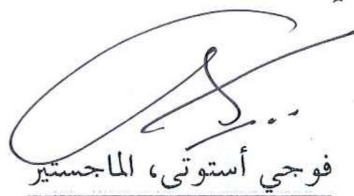 فوجي أستوتى، الماجستير